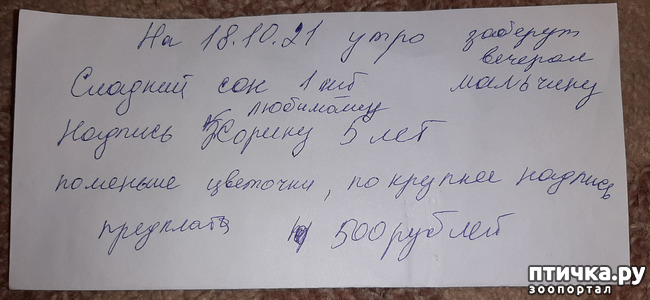 На 18.10.21 утро заберут
вечером
Сладкий сон 1 мб мальчику
любимому
Надпись Корину 5 лет
поменьше цветочки, по крупнее надпись
предплата 500 рублей
птичка.ру
зоопортал